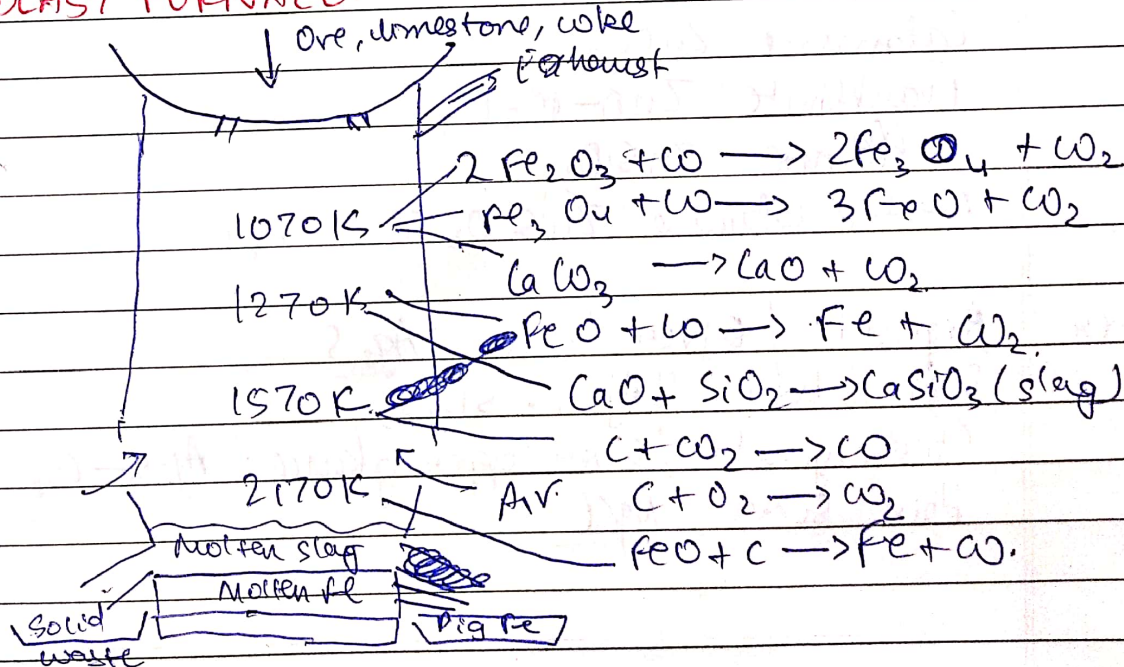 BLAST FURNACE
Ore, limestone, coke
Exhaust
2Fe₂O₃ + CO → 2Fe₃O₄ + CO₂
1070K Fe₃O₄ + CO → 3FeO + CO₂
CaCO₃ → CaO + CO₂
1270K
FeO + CO → Fe + CO₂
1570K CaO + SiO₂ → CaSiO₃ (slag)
C + CO₂ → CO
2170K Air C + O₂ → CO₂
Molten slag FeO + C → Fe + CO.
Molten Fe
Solid Pig Fe
waste